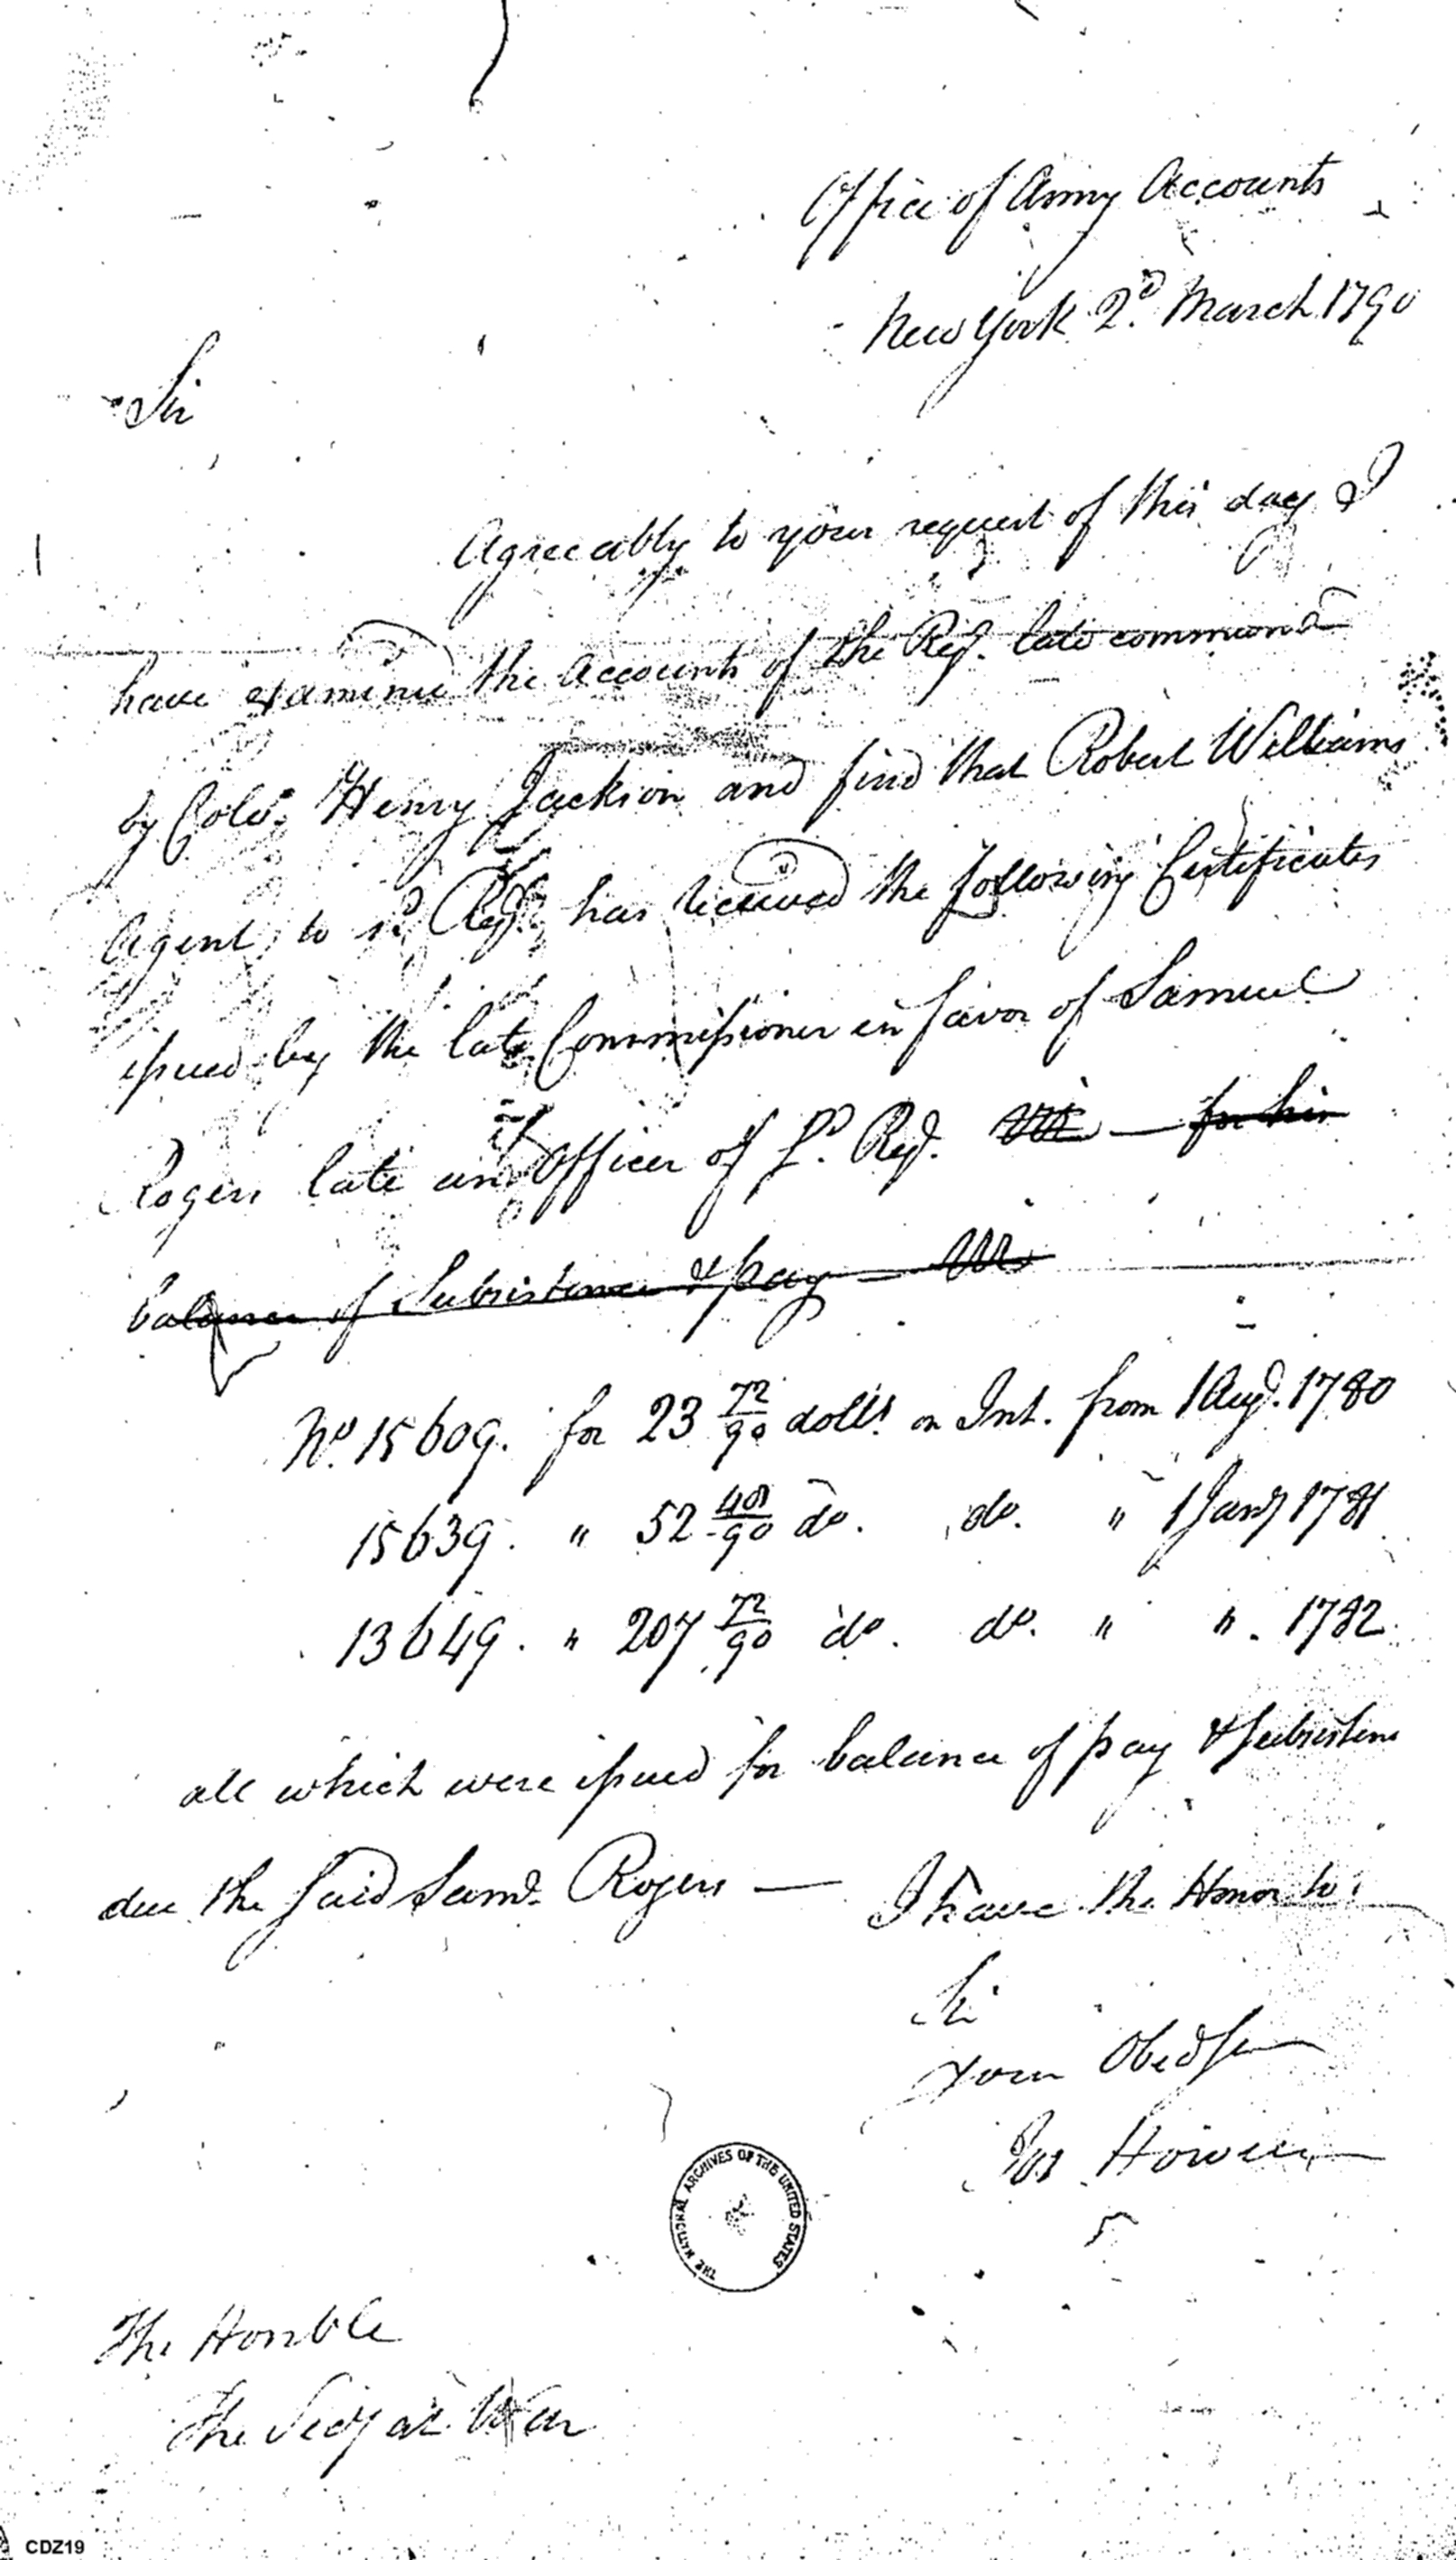 Office of Army Accounts
New York 2d. March 1790
Sir
Agreeably to your request of this day I
have examined the Accounts of the Regt. late command
by Colo. Henry Jackson and find that Robert Williams
Agent to sd. Regt. has received the following Certificates
issued by the late Commissioner in favor of Samuel
Rogers late an Officer of sd. Regt. — for his
balance of Subsistence & pay —
No. 15609. for 23 72/90 dolls. on Int. from 1 Augt. 1780
15639. " 52 48/90 do. do. " 1 Jany 1781
13649. " 207 72/90 do. do. " ". 1782
all which were issued for balance of pay & Subsistene
due the said Saml. Rogers — I have the Honor to
Sir
Your Obed Ser
Jos Howell
THE NATIONAL ARCHIVES OF THE UNITED STATES
The Honble
The Secy at War
CDZ19